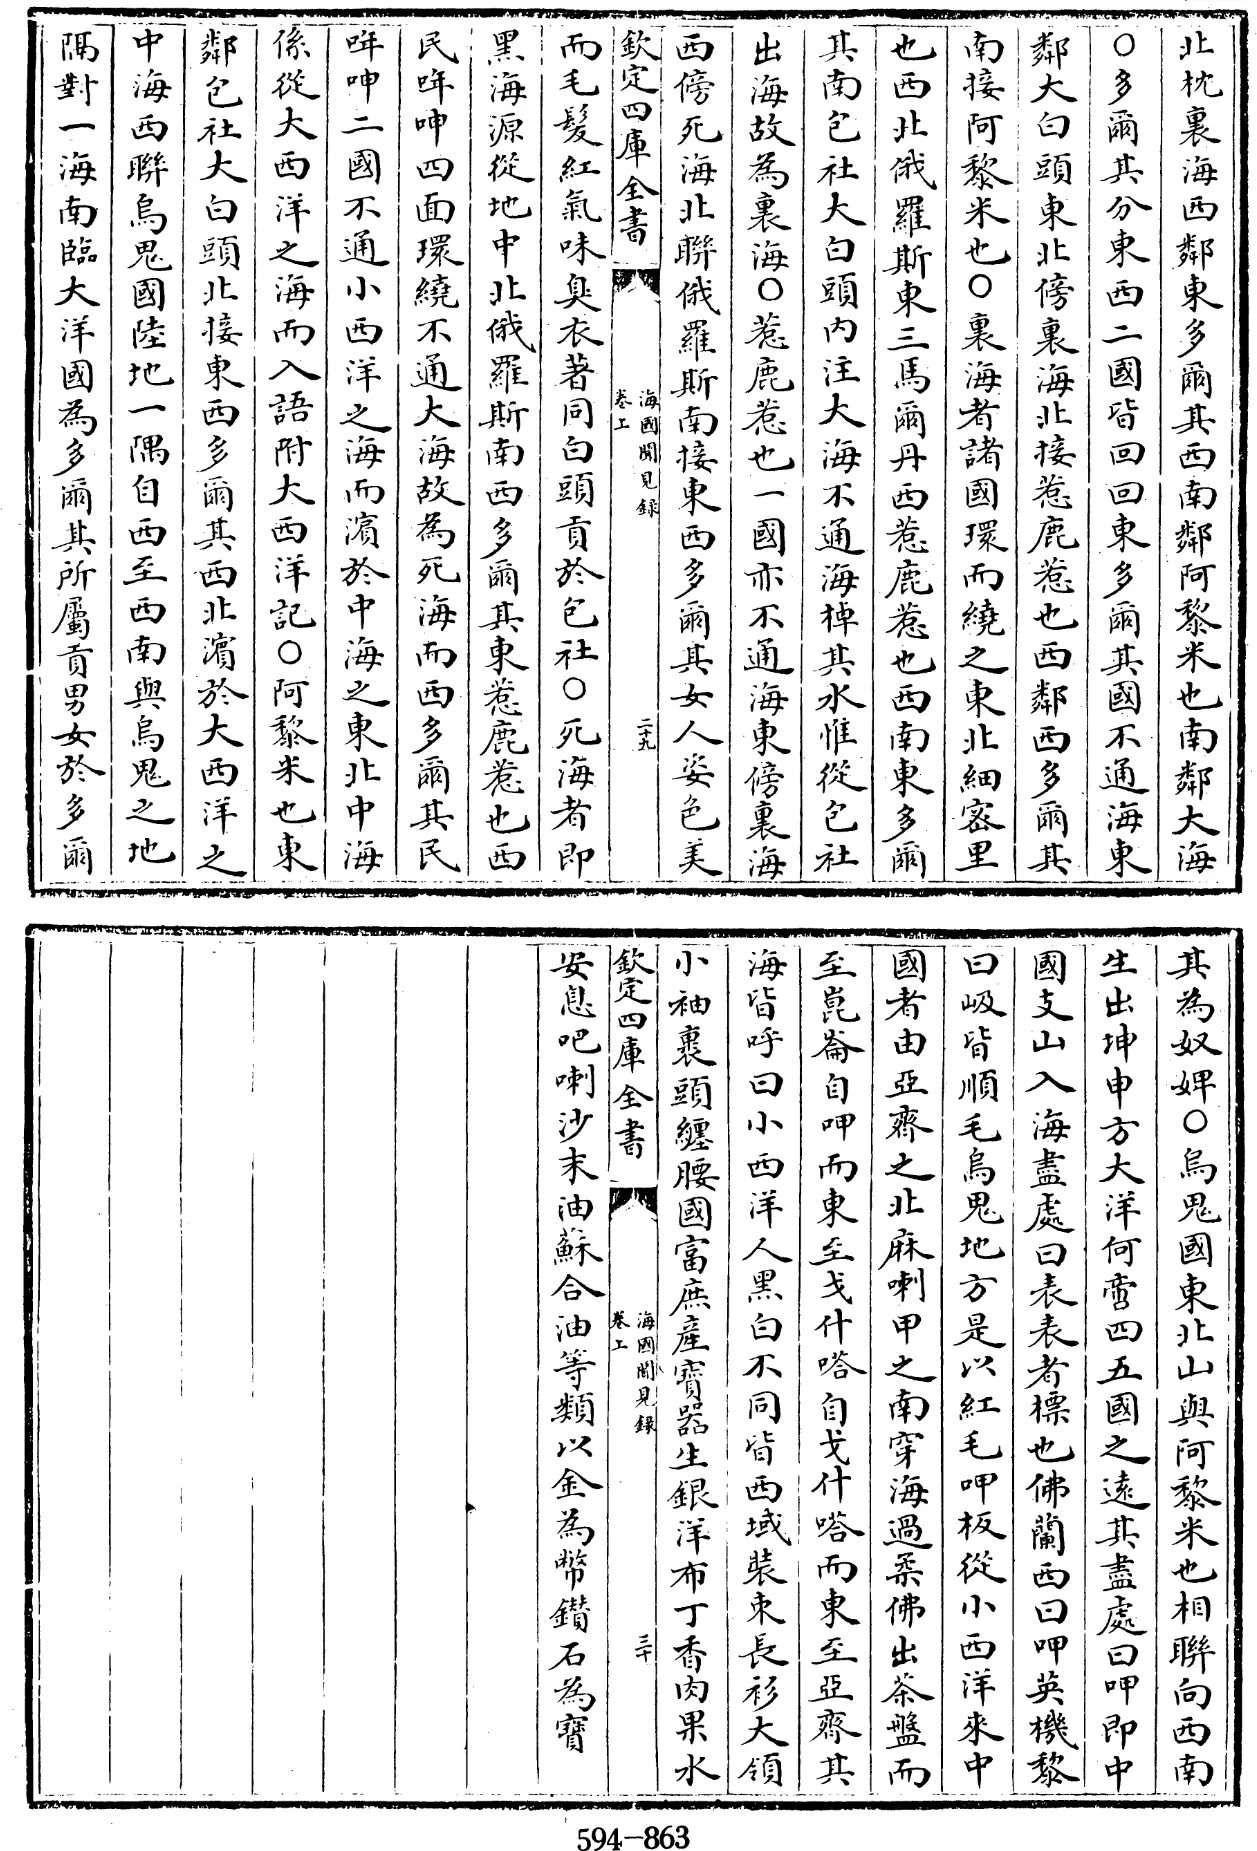 北枕裏海西鄰東多爾其西南鄰阿黎米也南鄰大海
〇多爾其分東西二國皆回回東多爾其國不通海東
鄰大白頭東北傍裏海北接惹鹿惹也西鄰西多爾其
南接阿黎米也〇裏海者諸國環而繞之東北細密里
也西北俄羅斯東三馬爾丹西惹鹿惹也西南東多爾
其南包社大白頭內注大海不通海棹其水惟從包社
出海故為裏海〇惹鹿惹也一國亦不通海東傍裏海
西傍死海北聯俄羅斯南接東西多爾其女人姿色美
欽定四庫全書
海國聞見録
卷上
二十九
而毛髮紅氣味臭衣著同白頭貢於包社〇死海者即
黑海源從地中北俄羅斯南西多爾其東惹鹿惹也西
民哖呻四面環繞不通大海故為死海而西多爾其民
哖呻二國不通小西洋之海而濱於中海之東北中海
係從大西洋之海而入語附大西洋記〇阿黎米也東
鄰包社大白頭北接東西多爾其西北濱於大西洋之
中海西聯烏鬼國陸地一隅自西至西南與烏鬼之地
隔對一海南臨大洋國為多爾其所屬貢男女於多爾
其為奴婢〇烏鬼國東北山與阿黎米也相聯向西南
生出坤申方大洋何啻四五國之遠其盡處曰呷即中
國支山入海盡處曰表表者標也佛蘭西曰呷英機黎
曰岋皆順毛烏鬼地方是以紅毛呷板從小西洋來中
國者由亞齊之北麻喇甲之南穿海過柔佛出茶盤而
至崑崙自呷而東至戈什嗒自戈什嗒而東至亞齊其
海皆呼曰小西洋人黑白不同皆西域裝束長衫大領
小袖裹頭纏腰國富庶產寶器生銀洋布丁香肉果水
欽定四庫全書
海國聞見録
卷上
三十
安息吧喇沙末油蘇合油等類以金為幣鑽石為寶
594-863